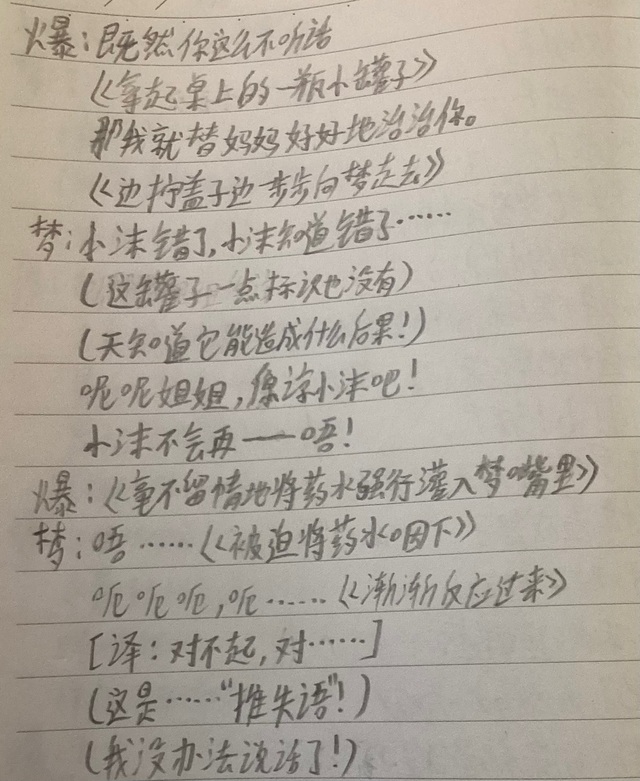 爆：既然你这么不听话
《拿起桌上的一瓶小罐子》
那我就替妈妈好好地治治你。
《边拧盖子边一步步向梦走去》
梦：小沫错了，小沫知道错了……
（这罐子一点标识也没有）
（天知道它能造成什么后果！）
呢呢姐姐，原谅小沫吧！
小沫不会再——唔！
爆：《毫不留情地将药水强行灌入梦嘴里》
梦：唔……《被迫将药水咽下》
呃呃呃，呃……《渐渐反应过来》
[译：对不起，对……]
（这是……“推失语”！）
（我没办法说话了！）